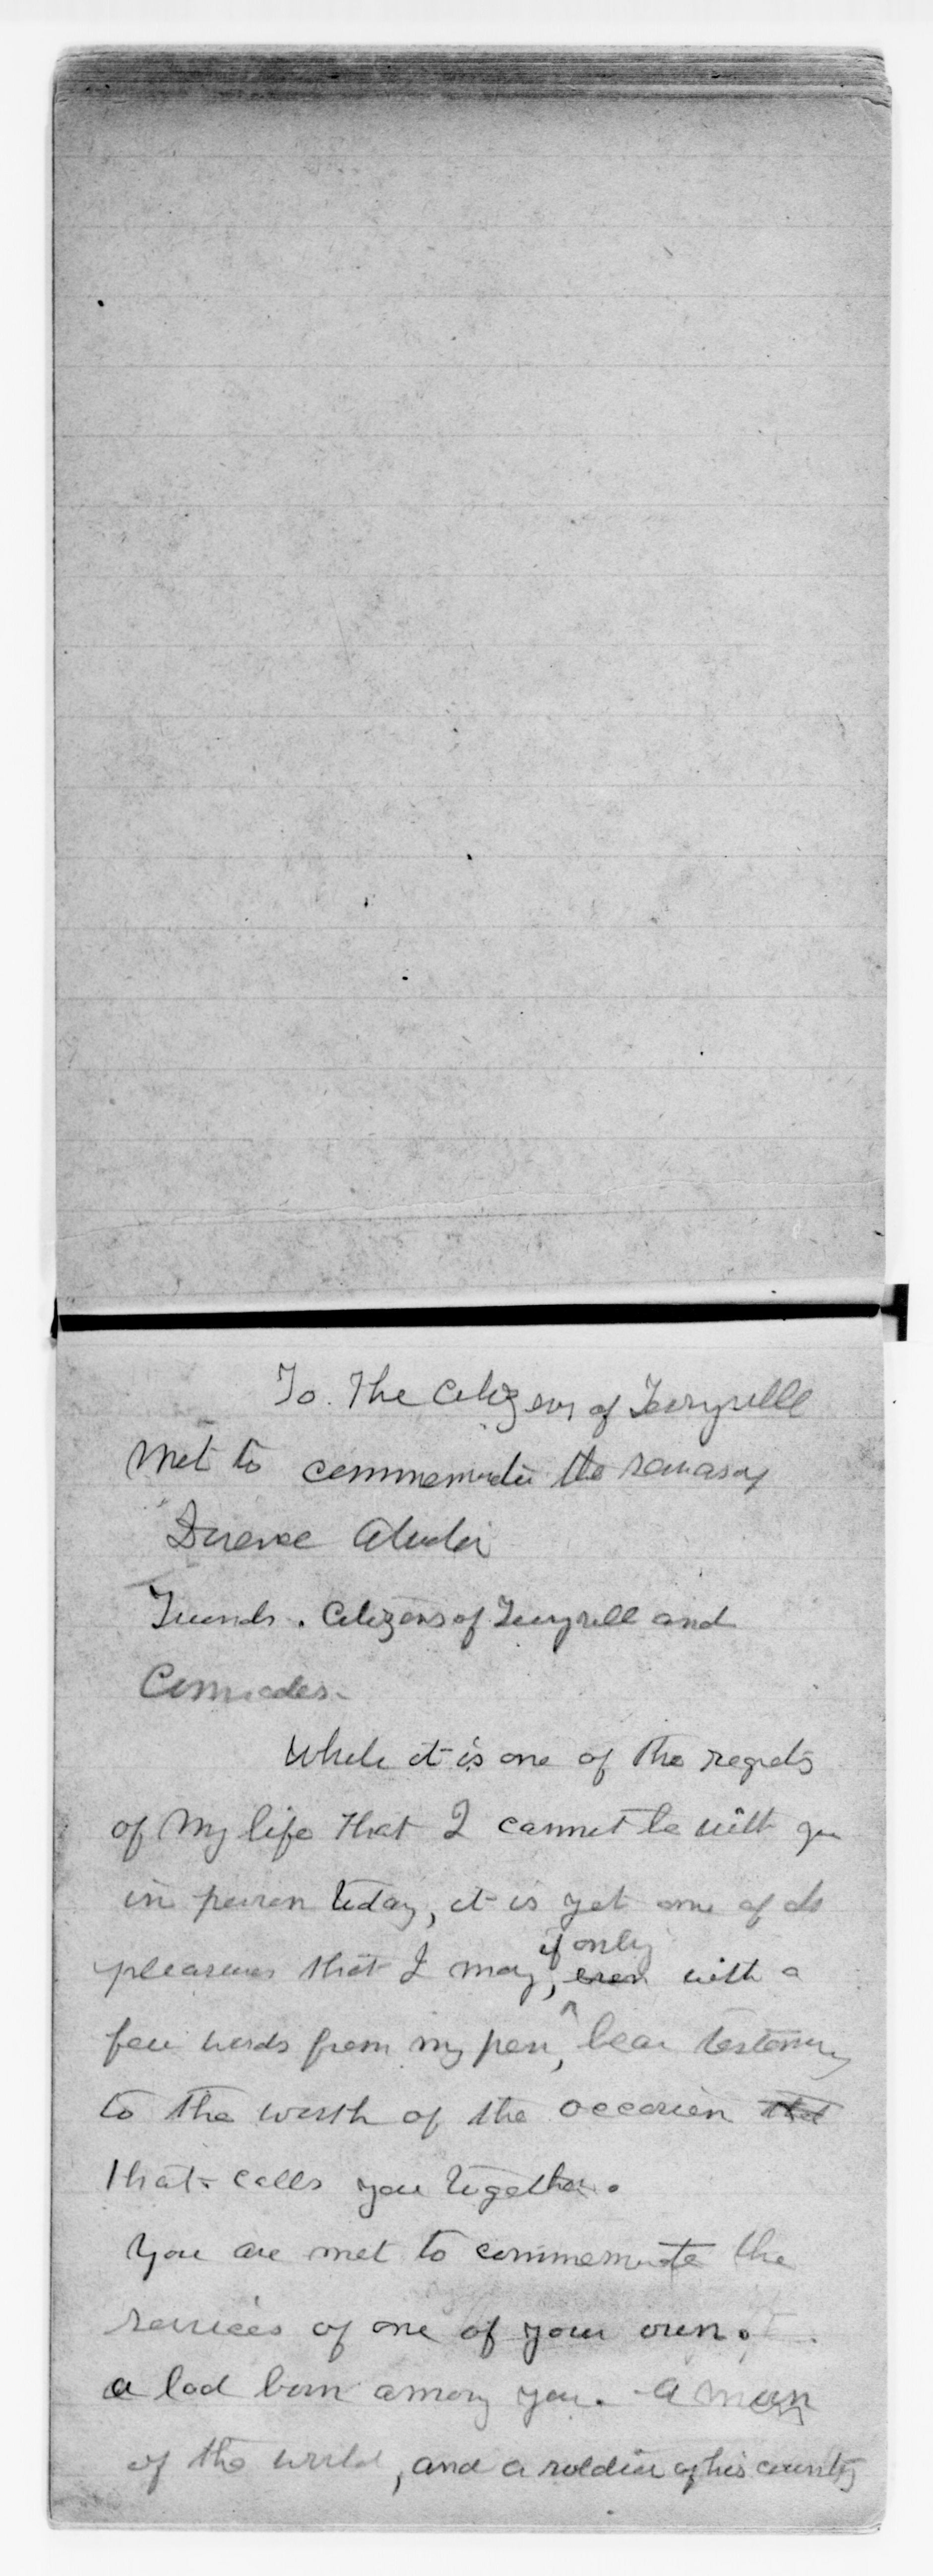 To. The Citizens of Terryville
Met to commemorate the services of
Dorence Atwater
Friends. Citizens of Terryville and
Comrades.
While it is one of the regrets
of My life that I cannot be with you
in person today, it is yet one of its
pleasures that I may, if only even with a
few words from my pen, bear testimony
to the worth of the occasion that
that calls you together.
You are met to commemorate the
services of one of your own.
a lad born among you. A man
of the world, and a soldier of his country